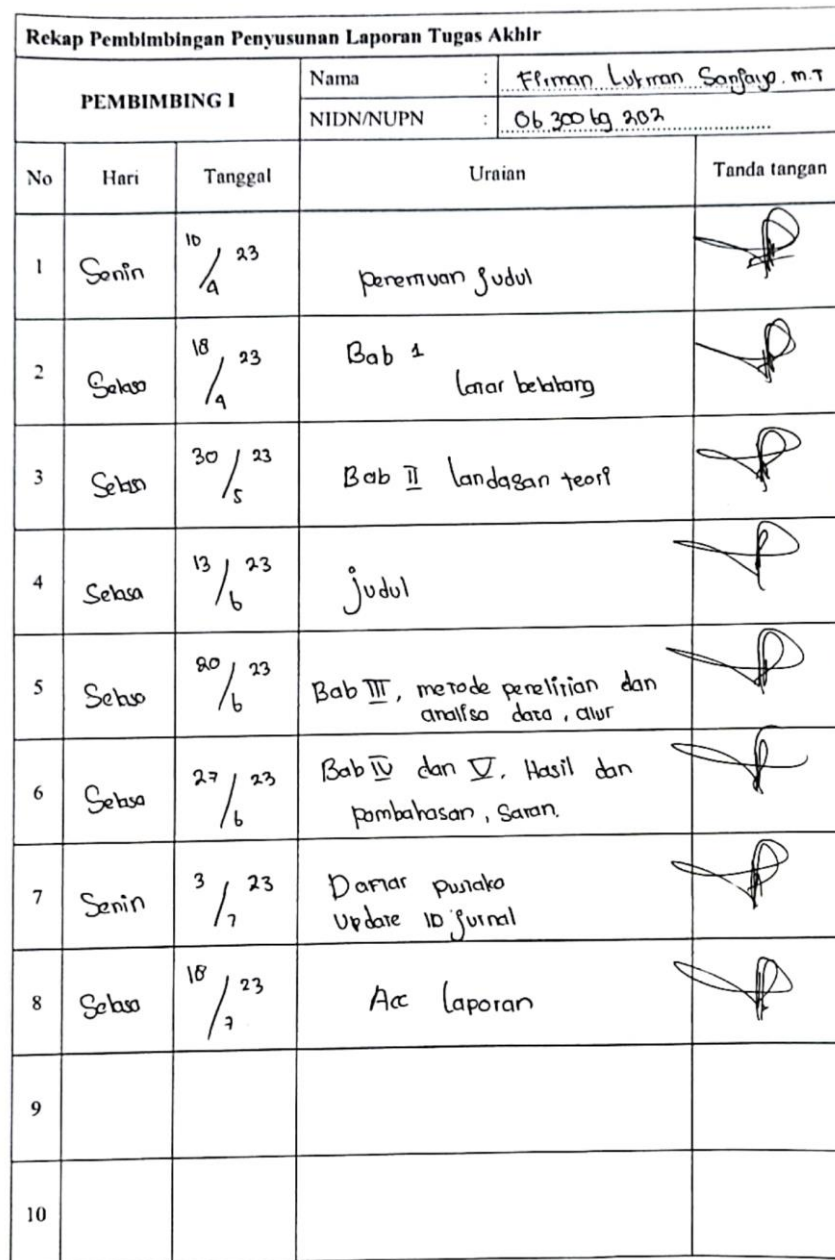 Rekap Pembimbingan Penyusunan Laporan Tugas Akhir
PEMBIMBING I
Nama : Firman Lukman Sanjaya. M.T
NIDN/NUPN : 06 300 69 202
No Hari Tanggal Uraian Tanda tangan
1 Senin 10/4 23 penemuan judul
2 Selasa 18/4 23 Bab 1
latar belakang
3 Selasa 30/5 23 Bab II landasan teori
4 Selasa 13/6 23 judul
5 Selasa 20/6 23 Bab III, metode penelitian dan
analisa data, alur
6 Selasa 27/6 23 Bab IV dan V. Hasil dan
pembahasan, Saran.
7 Senin 3/7 23 Daftar pustaka
Update 10 jurnal
8 Selasa 18/7 23 Acc laporan
9
10